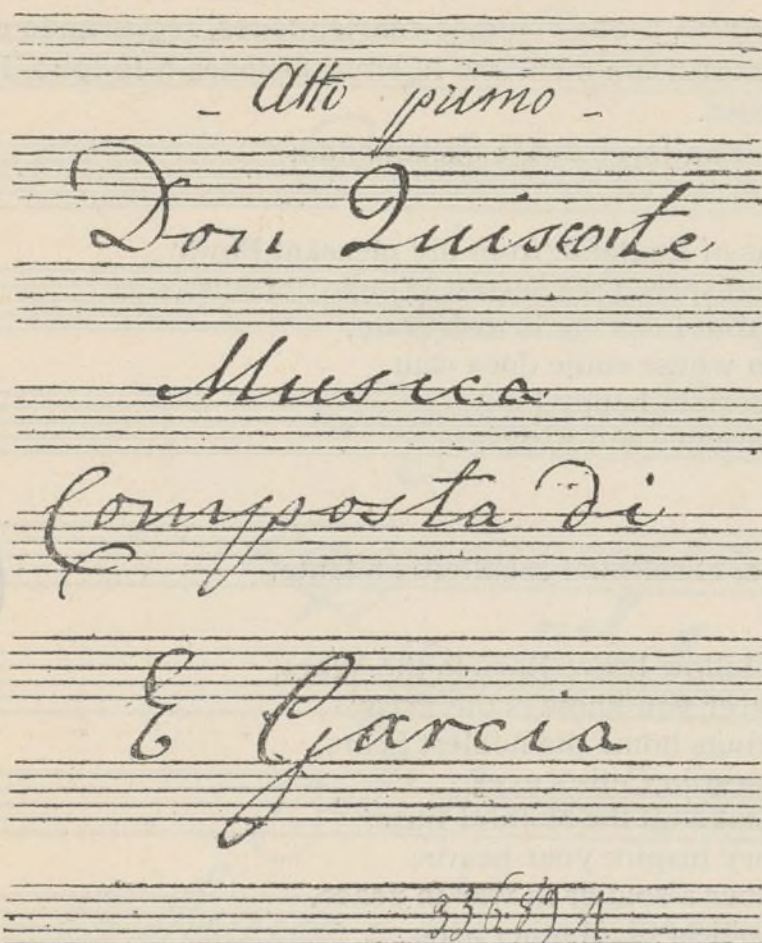 - Atto primo -
Don Quisciotte
Musica
Composta di
E Garcia